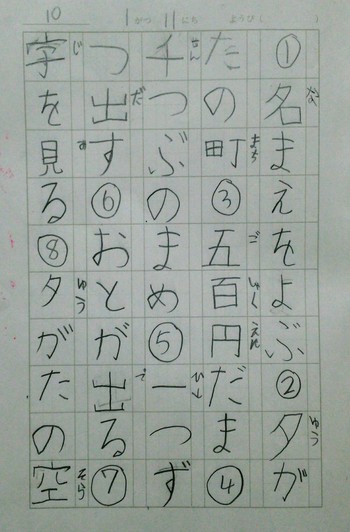 10 1がつ 11にち ようび
①名まえをよぶ②夕が
な ゆう
たの町③五百円だま④
まち ご えん
千つぶのまめ⑤一つず
せん ひと
つ出す⑥おとが出る⑦
だ で
字を見る⑧夕がたの空
じ み ゆう そら